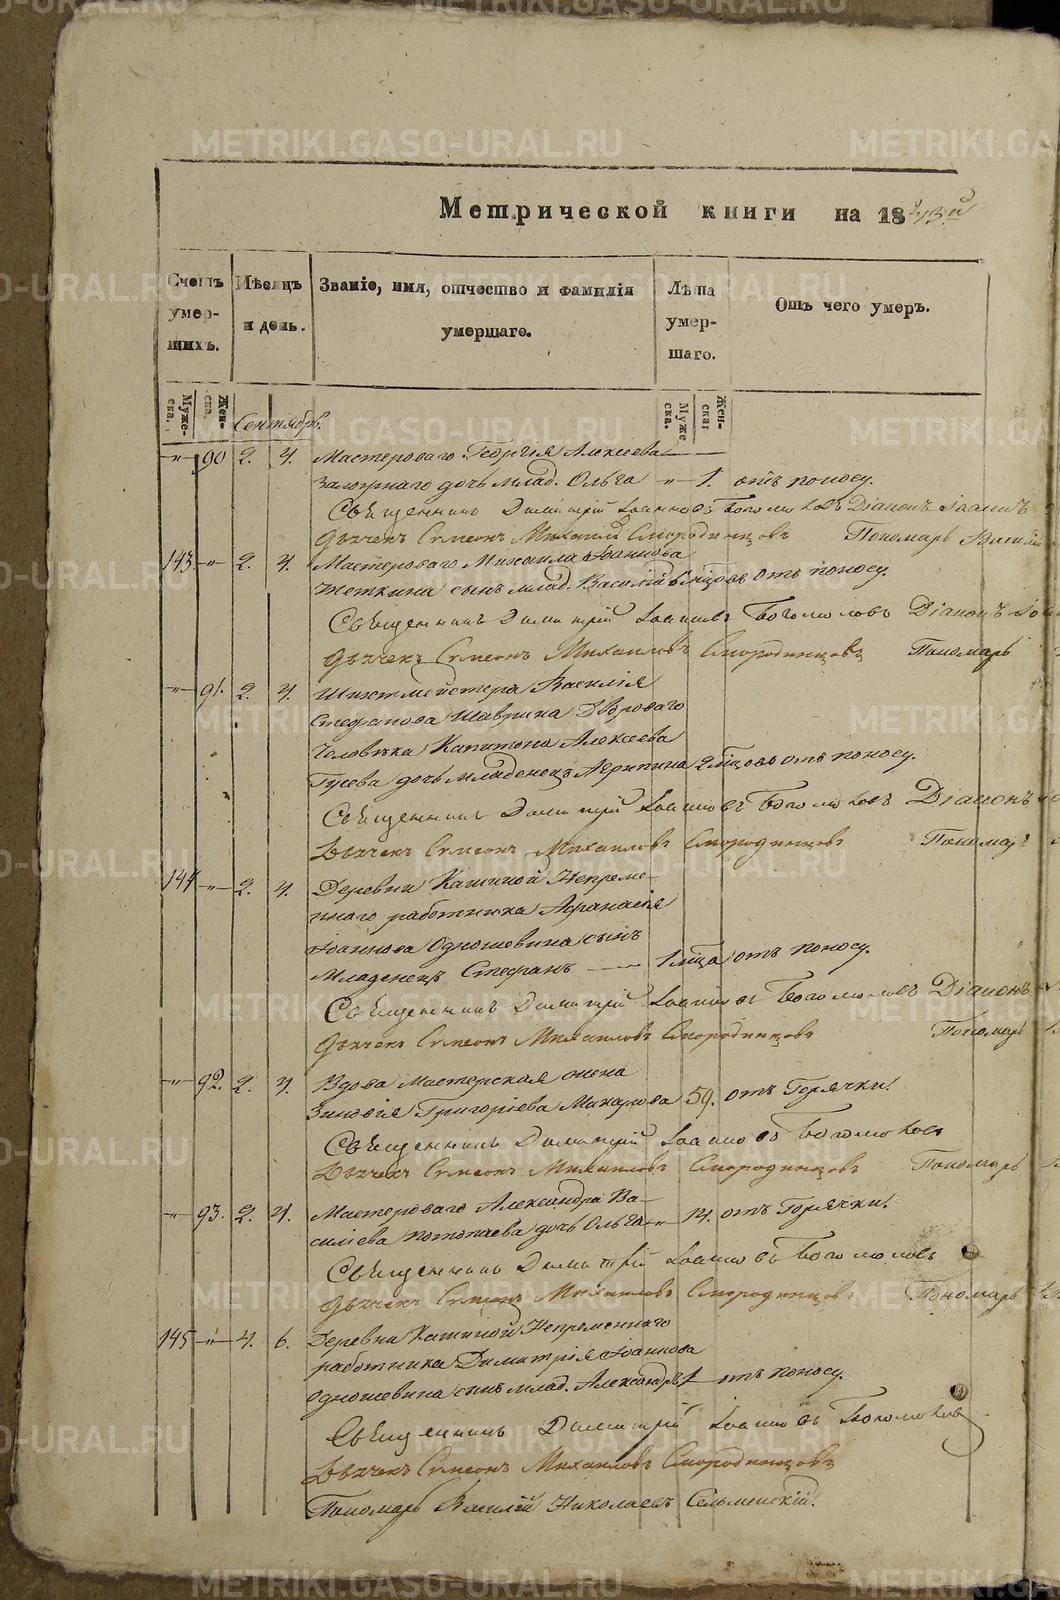 Метрической книги на 1843й
Счетъ умер- щихъ.
Мѣсяцъ и день.
Званіе, имя, отчество и фамилія умершаго.
Лѣта умер- шаго.
Отъ чего умеръ.
Муже- ска.
Жен- ска.
Муже ска.
Жен- ска
Сентябрь.
—"— 90 2. 4. Мастероваго Георгія Алексеева
дочь млад. Ольга —"— 1. отъ поносу.
Священникъ Димитрій Іоанновъ Боголюбовъ Діаконъ Іоаннъ
Дьячекъ Симеонъ Михаиловъ Смородинцовъ Пономарь Василій
143. —"— 2. 4. Мастероваго Михаила Іоаннова
Щеткина сынъ млад. Василій 6 мѣцовъ отъ поносу.
Священникъ Димитрій Іоанновъ Боголюбовъ Діаконъ
Дьячекъ Симеонъ Михаиловъ Смородинцовъ Пономарь
—"— 91. 2. 4. Шихтмейстера Василія
Стефанова Шаврина Двороваго
Человѣка Капитона Алексеева
Гусева дочь младенецъ Агрипина 2 мѣцовъ отъ поносу.
Священникъ Димитрій Іоанновъ Боголюбовъ Діаконъ
Дьячекъ Симеонъ Михаиловъ Смородинцовъ Пономарь
144 —"— 2. 4. Деревни Кашиной Непреме-
ннаго работника Афанасія
Іоаннова Одношевина сынъ
Младенецъ Стефанъ — 1 мѣца отъ поносу.
Священникъ Димитрій Іоанновъ Боголюбовъ Діаконъ
Дьячекъ Симеонъ Михаиловъ Смородинцовъ Пономарь
—"— 92. 2. 4. Вдова Мастерская жена
Зиновія Григоріева Макарова 59. отъ Горячки.
Священникъ Димитрій Іоанновъ Боголюбовъ
Дьячекъ Симеонъ Михаиловъ Смородинцовъ Пономарь
—"— 93. 2. 4. Мастероваго Александра Ва-
силіева Потопаева дочь Ольга —"— 14. отъ Горячки.
Священникъ Димитрій Іоанновъ Боголюбовъ
Дьячекъ Симеонъ Михаиловъ Смородинцовъ Пономарь
145 —"— 4. 6. Деревни Кашиной Непременнаго
работника Димитрія Іоаннова
Одношевина сынъ млад. Александръ 1 — отъ поносу.
Священникъ Димитрій Іоанновъ Боголюбовъ
Дьячекъ Симеонъ Михаиловъ Смородинцовъ
Пономарь Василій Николаевъ Сельменскій.
METRIKI.GASO-URAL.RU